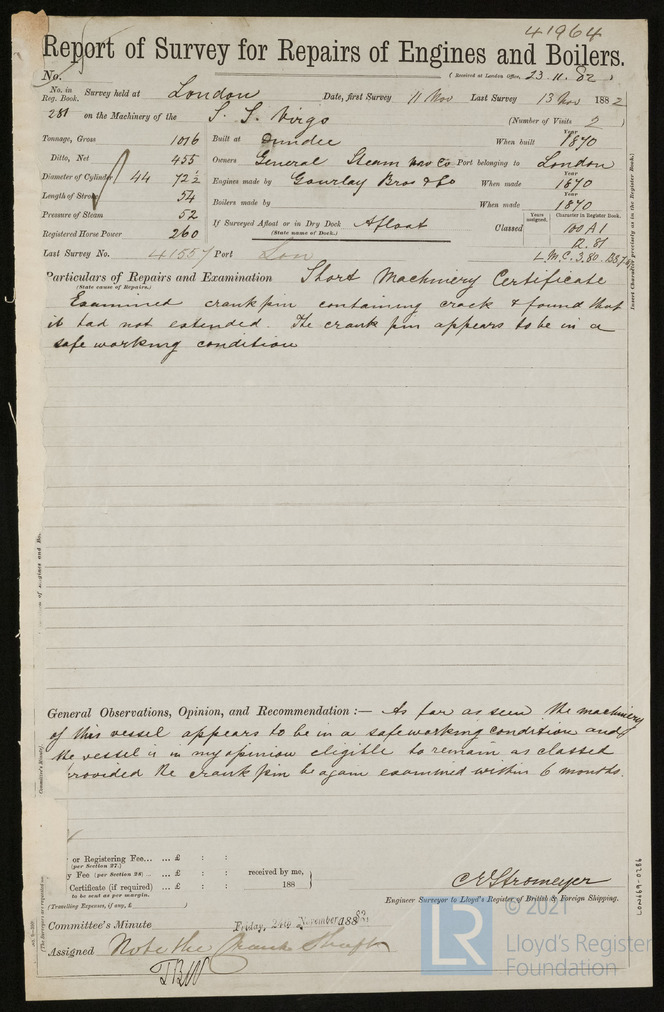 41964
Report of Survey for Repairs of Engines and Boilers.
No.
(Received at London Office, 23.11.82)
No. in Reg. Book. Survey held at London Date, first Survey 11 Nov Last Survey 13 Nov 1882
281 on the Machinery of the S. S. Virgo (Number of Visits 2)
Tonnage, Gross 1016 Built at Dundee When built Year 1870
Ditto, Net 455 Owners General Steam Nav Co Port belonging to London
Diameter of Cylinder 44 72½ Engines made by Gourlay Bros & Co When made Year 1870
Length of Stroke 54 Boilers made by When made Year 1870
Pressure of Steam 52 If Surveyed Afloat or in Dry Dock Afloat
(State name of Dock.)
Classed Years assigned. Character in Register Book. 100 A1
Registered Horse Power 260
L.M.C. 3.80
Last Survey No. 41557 Port Lon
Insert Character precisely as in the Register Book.
Particulars of Repairs and Examination Short Machinery Certificate
(State cause of Repairs.)
Examined crank pin containing crack & found that
it had not extended. The crank pin appears to be in a
safe working condition
General Observations, Opinion, and Recommendation :— As far as seen the machinery
of this vessel appears to be in a safe working condition and
the vessel is in my opinion eligible to remain as classed
provided the crank pin be again examined within 6 months.
or Registering Fee... ... £ : :
(per Section 27.)
y Fee (per Section 28) ... £ : : received by me,
Certificate (if required) ... £ : : 188
to be sent as per margin.
(Travelling Expenses, if any, £ )
C E Stromeyer
Engineer Surveyor to Lloyd's Register of British & Foreign Shipping.
Committee's Minute Friday, 24th November 1882
Assigned Note the Crank Shaft
LON469-0286
© 2021
LR
Lloyd's Register
Foundation